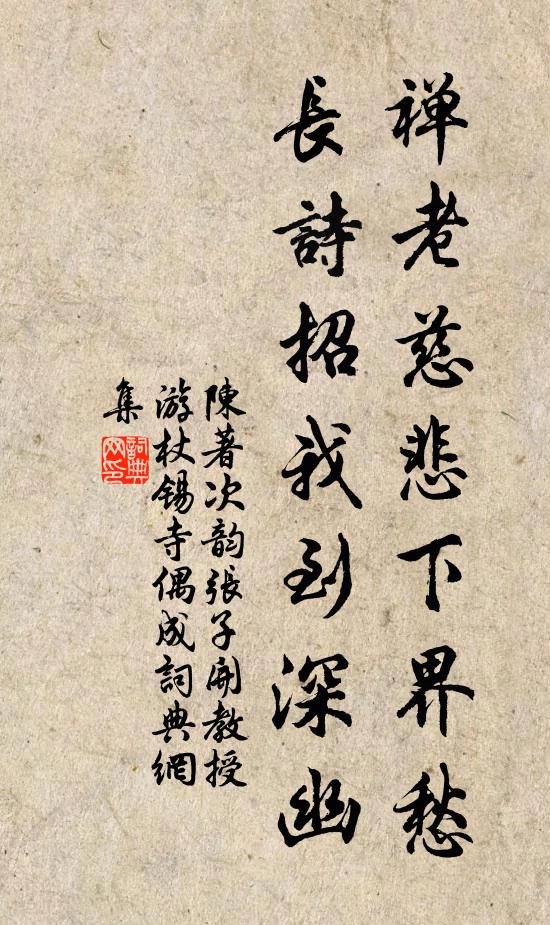 禅老慈悲下界愁
長詩招我到深幽
陳著次韵張子開教授
游杖錫寺偶成詞典網
集
詞典網印